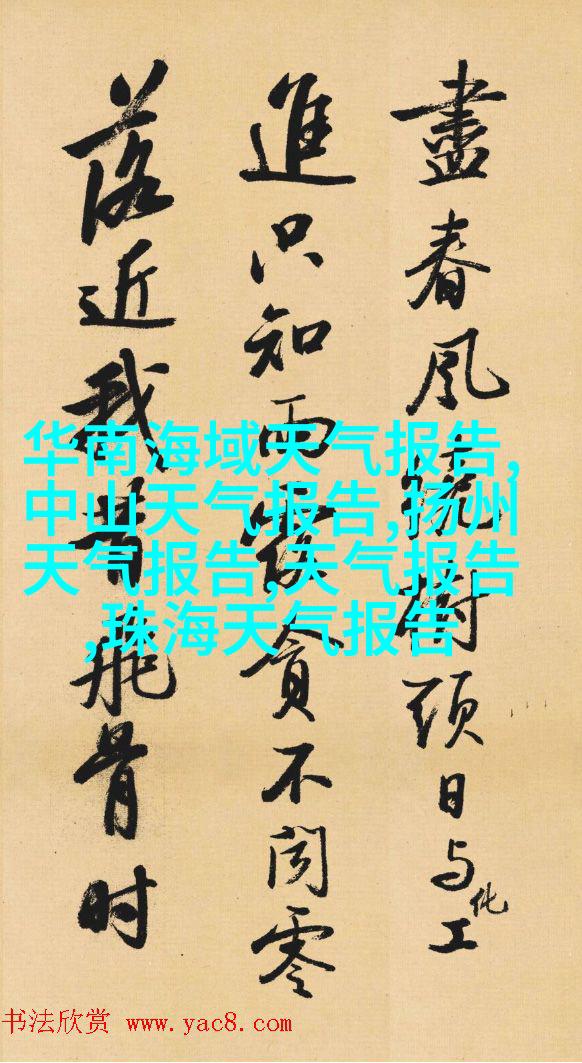 盡春風繞樹頭日与化工
進只知雨露貪不聞零
落近我昔飛骨时
华南海域天气报告,
中山天气报告,扬州
天气报告,天气报告
,珠海天气报告
书法欣赏 www.yac8.com